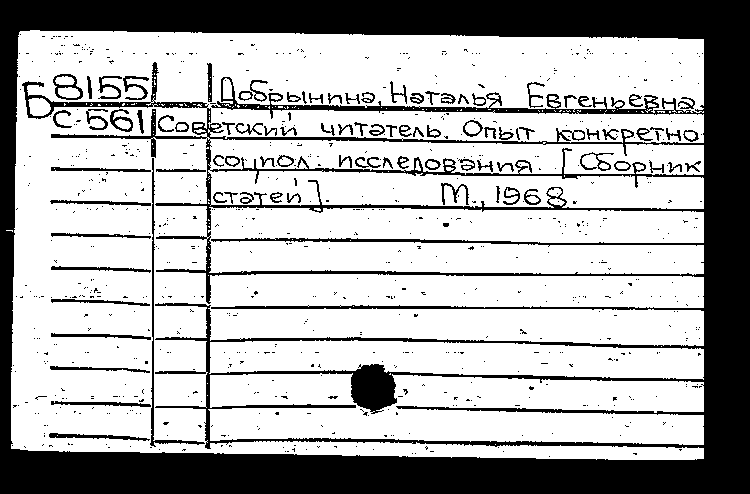 Б 8155 Добрынина, Наталья Евгеньевна.
С-561 Советский читатель. Опыт конкретно
социол. исследования. [Сборник
статей]. М., 1968.